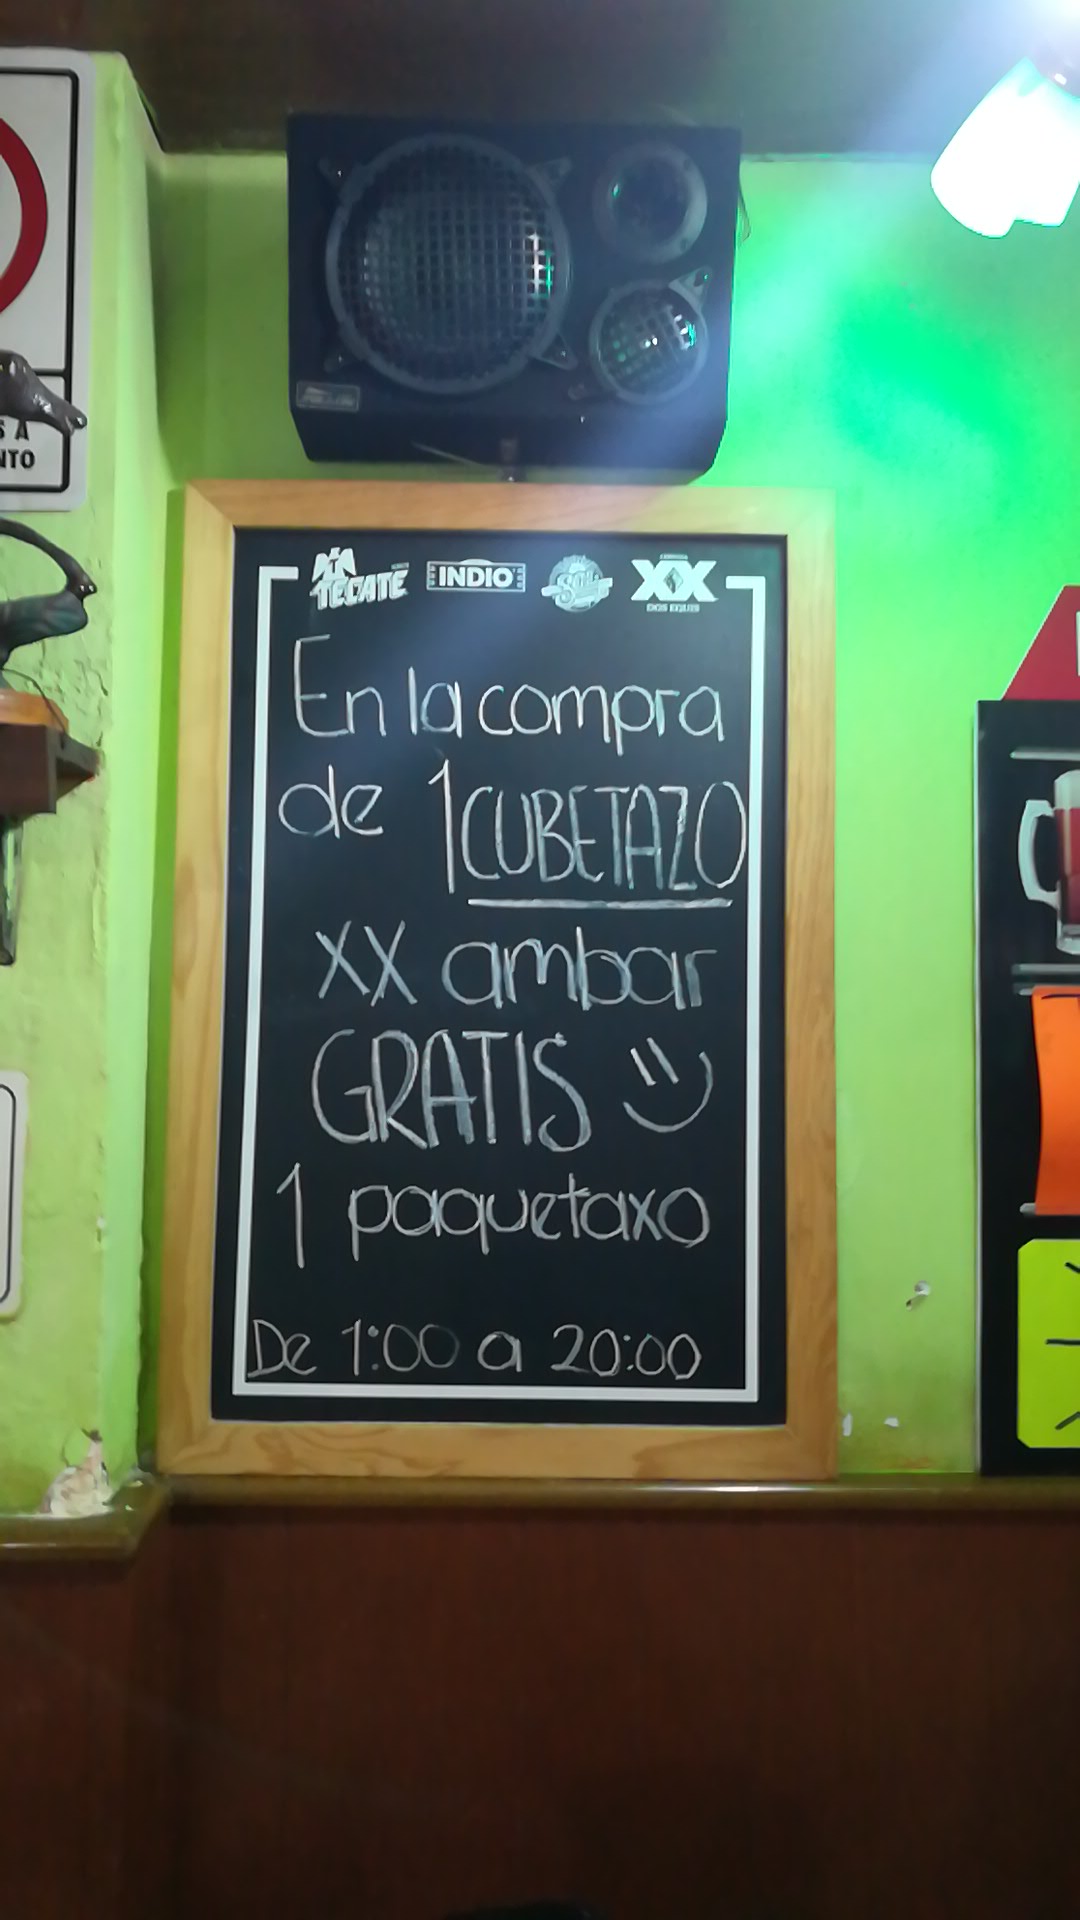 S A
NTO
TECATE INDIO SOL XX
DOS EQUIS
En la compra
de 1 CUBETAZO
XX ambar
GRATIS
1 paquetaxo
De 1:00 a 20:00